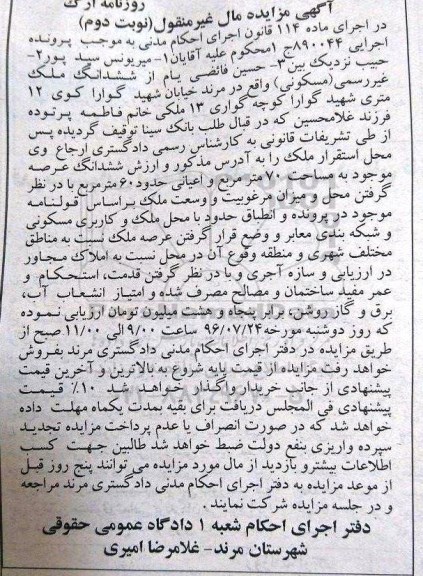 روزنامه ارک
آگهی مزایده مال غیرمنقول(نوبت دوم)
در اجرای ماده ۱۱۴ قانون اجرای احکام مدنی به موجب پرونده
اجرایی ۸۹۰۰۴۴ج ۱محکوم علیه آقایان۱-میریونس سید پور۲-
حبیب نزدیک بین۳- حسین فائضی یام از ششدانگ ملک
غیررسمی(مسکونی) واقع در مرند خیابان شهید گوارا کوی ۱۲
متری شهید گوارا کوچه گواری ۱۳ ملکی خانم فاطمه پرتوده
فرزند غلامحسین که در قبال طلب بانک سینا توقیف گردیده پس
از طی تشریفات قانونی به کارشناس رسمی دادگستری ارجاع وی
محل استقرار ملک را به آدرس مذکور و ارزش ششدانگ عرصه
موجود به مساحت ۷۰ متر مربع و اعیانی حدود۶۰مترمربع با در نظر
گرفتن محل و میزان مرغوبیت و وسعت ملک براساس قولنامه
موجود در پرونده و انطباق حدود با محل ملک و کاربری مسکونی
و شبکه بندی معابر و وضع قرار گرفتن عرصه ملک نسبت به مناطق
مختلف شهری و منطقه وقوع آن در محل نسبت به املاک مجاور
در ارزیابی و سازه آجری و با در نظر گرفتن قدمت، استحکام و
عمر مفید ساختمان و مصالح مصرف شده و امتیاز انشعاب آب،
برق و گاز روشن، برابر پنجاه و هشت میلیون تومان ارزیابی نموده
که روز دوشنبه مورخه۹۶/۰۷/۲۴ ساعت ۹/۰۰ الی ۱۱/۰۰ صبح از
طریق مزایده در دفتر اجرای احکام مدنی دادگستری مرند بفروش
خواهد رفت مزایده از قیمت پایه شروع به بالاترین و آخرین قیمت
پیشنهادی از جانب خریدار واگذار خواهد شد ۱۰٪ قیمت
پیشنهادی فی المجلس دریافت برای بقیه بمدت یکماه مهلت داده
خواهد شد که در صورت انصراف یا عدم پرداخت مزایده تجدید
سپرده واریزی بنفع دولت ضبط خواهد شد طالبین جهت کسب
اطلاعات بیشترو بازدید از مال مورد مزایده می توانند پنج روز قبل
از موعد مزایده به دفتر اجرای احکام مدنی دادگستری مرند مراجعه
و در جلسه مزایده شرکت نمایند.
دفتر اجرای احکام شعبه ۱ دادگاه عمومی حقوقی
شهرستان مرند- غلامرضا امیری